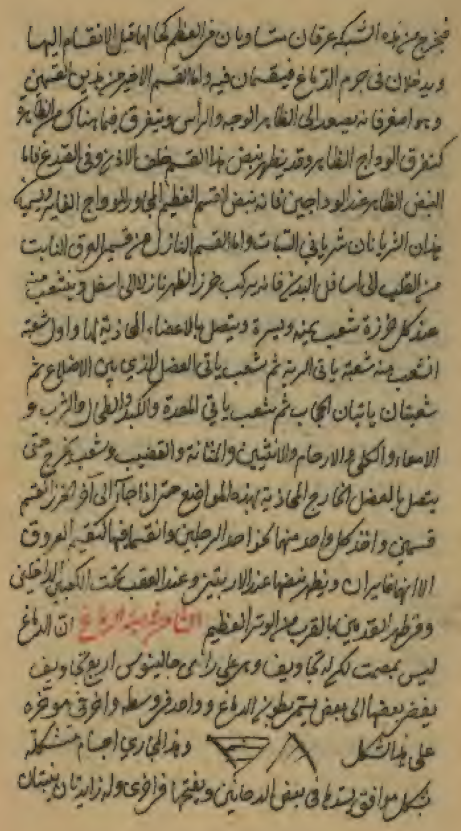 فيخرج من هذه الشبكة عرقان متساويان من العظم كحالهما قبل الانقسام اليها
ويدخلان في جرم الدماغ فيقسمان فيه واما القسم الاخر من هذين القسمين
وهو اصغر فانه يصعد الى الظاهر الوجه والرأس ويتفرق فيما هناك من
كتفرق الوداج الظاهر وقد يظهر نبض هذا القسم خلف الاذن وفي الصدغ فاما
النبض الظاهر عند الوداجين فانه نبض القسم العظيم المجاور للوداج الغاير ويسميان
هذان الشريانان شرياني السبات واما القسم النازل من قسمي العرق النابت
من القلب الى اسافل البدن فانه يركب خرز الظهر نازلا الى اسفل ويتشعب منه
عند كل خرزة شعب يمنة ويسرة ويتصل بالاعضاء المحاذية لها واول شعبة
انشعبت منه شعبة ياتي الرية ثم شعب ياتي العضل الذي بين الاضلاع ثم
شعبتان ياتيان الحجاب ثم شعب ياتي المعدة والكبد والطحال والثرب و
الامعاء والكلى والارحام والانثيين والمثانة والقضيب وشعب يخرج حتى
يتصل بالعضل الخارج المحاذية لهذه المواضع حتى اذا جاء الى آخر الخرز انقسم
قسمين واخذ كل واحد منها نحو احد الرجلين وانقسم فيها كتقسيم العروق
الا انهما غايران ويظهر نبضها عند الاربيتين وعند العقب تحت الكعبين الداخلين
وفي ظهر القدمين بالقرب من الوتر العظيم في هيئة الدماغ ان الدماغ
ليس بمصمت لكن له تجاويف وهي على راي جالينوس اربع تجاويف
يفضي بعضها الى بعض يسمى بطون الدماغ وواحد في وسطه واخر في موخره
على هذا الشكل وهذا المجاري اجسام مشكلة
بشكل موافق يسدها في بعض الاحايين ويفتحها في اخرى وله زايدتان ينبتان